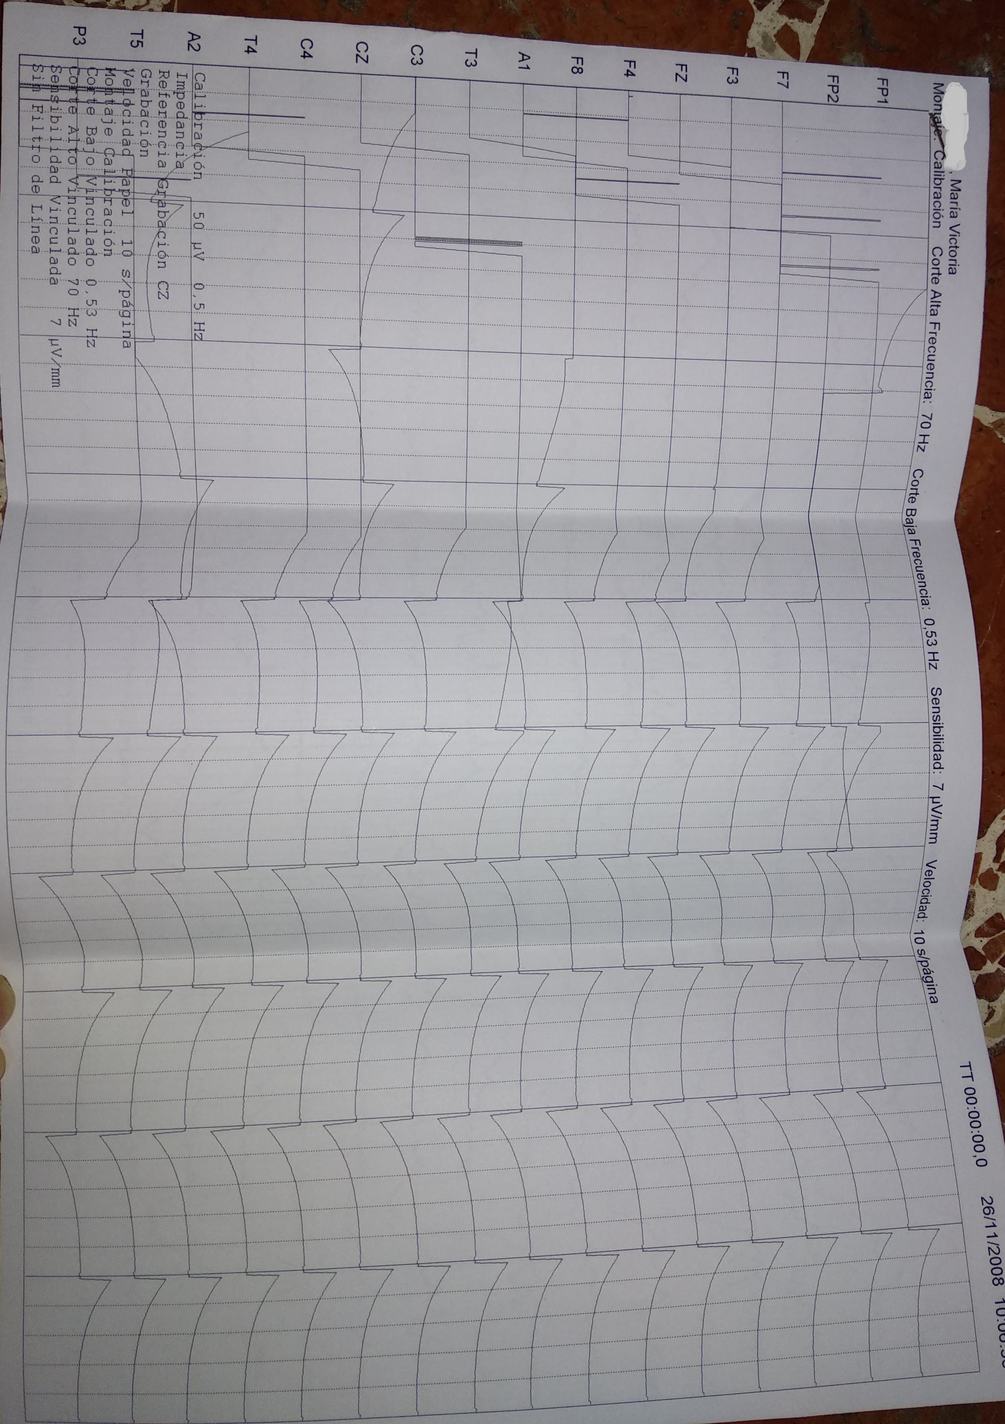 , María Victoria
Montaje: Calibración Corte Alta Frecuencia: 70 Hz Corte Baja Frecuencia: 0,53 Hz Sensibilidad: 7 µV/mm Velocidad: 10 s/página
TT 00:00:00,0 26/11/2008
FP1
FP2
F7
F3
FZ
F4
F8
A1
T3
C3
CZ
C4
T4
A2
T5
P3
Calibración 50 µV 0,5 Hz
Impedancia
Referencia Grabación CZ
Grabación
Velocidad Papel 10 s/página
Montaje Calibración
Corte Bajo Vinculado 0,53 Hz
Corte Alto Vinculado 70 Hz
Sensibilidad Vinculada 7 µV/mm
Sin Filtro de Línea